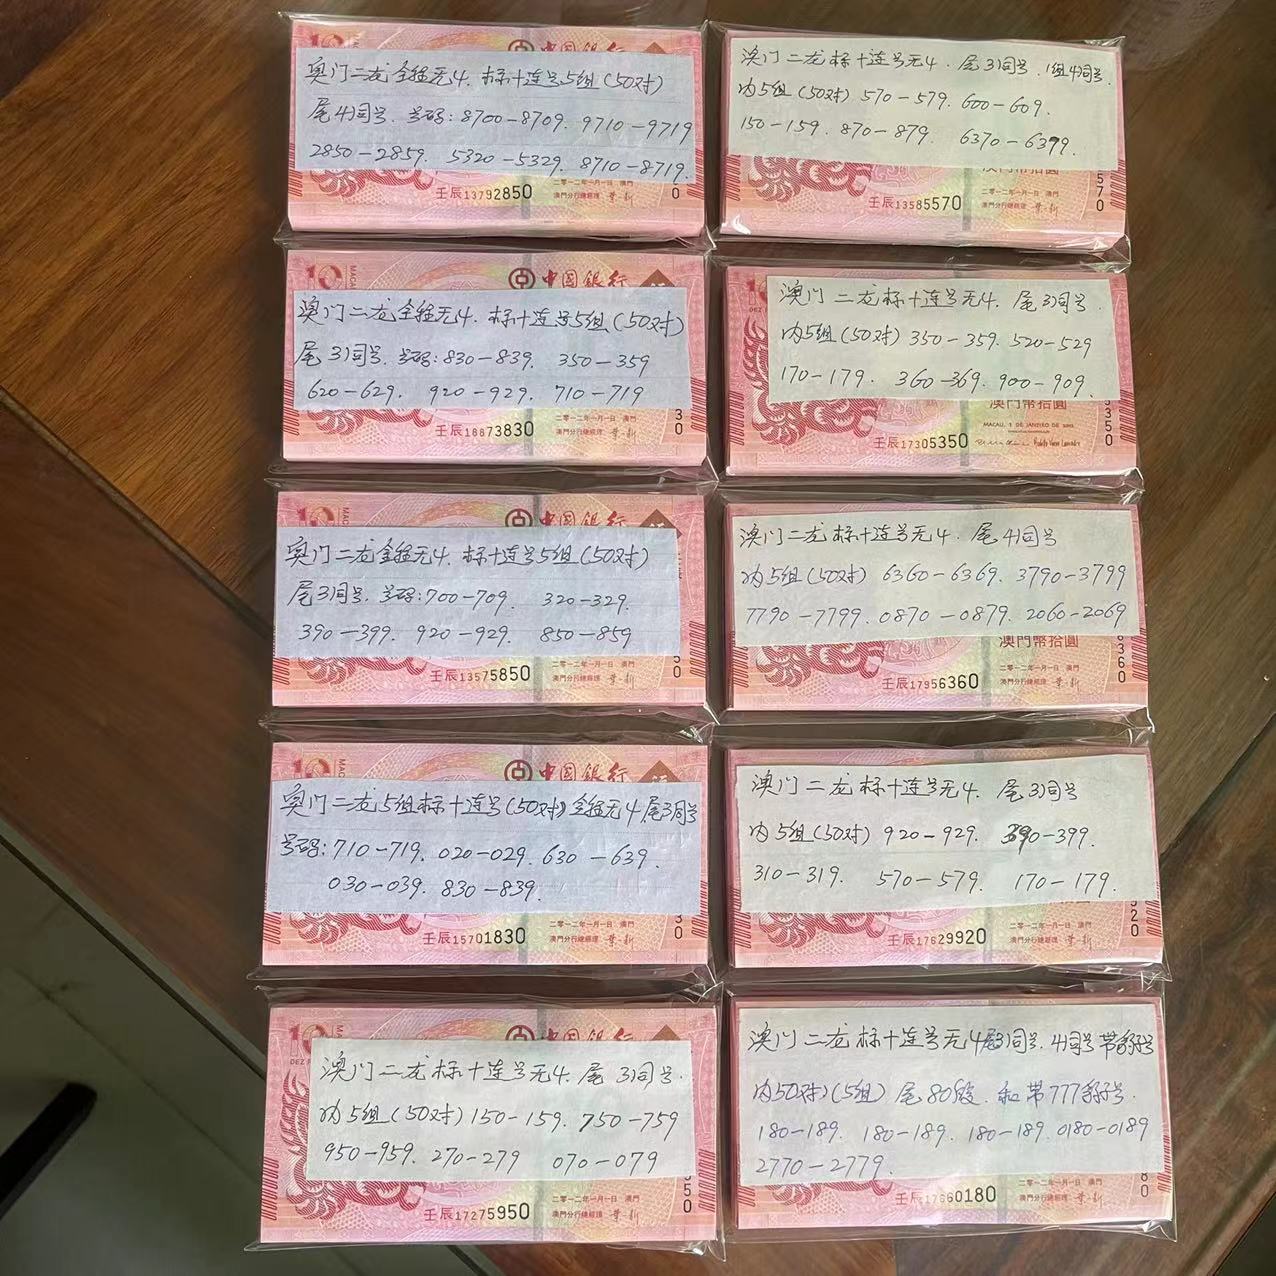 中国銀行
澳门二龙全程无4. 标十连号5组(50对)
尾4同号. 号码: 8700-8709. 9710-9719
2850-2859. 5320-5329. 8710-8719.
壬辰13792850
二零一二年一月一日 澳門
澳門分行總經理
澳门二龙标十连号无4. 尾3同号. 1组4同号.
内5组(50对) 570-579. 600-609.
150-159. 870-879. 6370-6379.
澳門幣拾圓
壬辰13585570
二零一二年一月一日 澳門
澳門分行總經理
570
10
MACAU
中国銀行
澳门二龙全程无4. 标十连号5组(50对)
尾3同号. 号码: 830-839. 350-359
620-629. 920-929. 710-719
壬辰18873830
二零一二年一月一日 澳門
澳門分行總經理
30
澳门二龙标十连号无4. 尾3同号.
内5组(50对) 350-359. 520-529
170-179. 360-369. 900-909.
澳門幣拾圓
MACAU, 1 DE JANEIRO DE 2012
壬辰17305350
350
中国銀行
澳门二龙全程无4. 标十连号5组(50对)
尾3同号. 号码: 700-709. 320-329.
390-399. 920-929. 850-859
壬辰13575850
二零一二年一月一日 澳門
澳門分行總經理
50
澳门二龙标十连号无4. 尾4同号
内5组(50对) 6360-6369. 3790-3799
7790-7799. 0870-0879. 2060-2069
澳門幣拾圓
壬辰17956360
二零一二年一月一日 澳門
澳門分行總經理
6360
10
中国銀行
澳门二龙5组标十连号(50对)全程无4.尾3同号
号码: 710-719. 020-029. 630-639.
030-039. 830-839.
壬辰15701830
二零一二年一月一日 澳門
澳門分行總經理
30
澳门二龙标十连号无4. 尾3同号
内5组(50对) 920-929. 390-399.
310-319. 570-579. 170-179.
壬辰17629920
二零一二年一月一日 澳門
澳門分行總經理
920
10
中国銀行
澳门二龙标十连号无4. 尾3同号.
内5组(50对) 150-159. 750-759
950-959. 270-279 070-079
壬辰17275950
二零一二年一月一日 澳門
澳門分行總經理
950
澳门二龙标十连号无4尾3同号. 4同号带豹子号
内50对(5组) 尾80段. 和带777豹子号.
180-189. 180-189. 180-189. 0180-0189
2770-2779.
壬辰17660180
二零一二年一月一日 澳門
澳門分行總經理
80